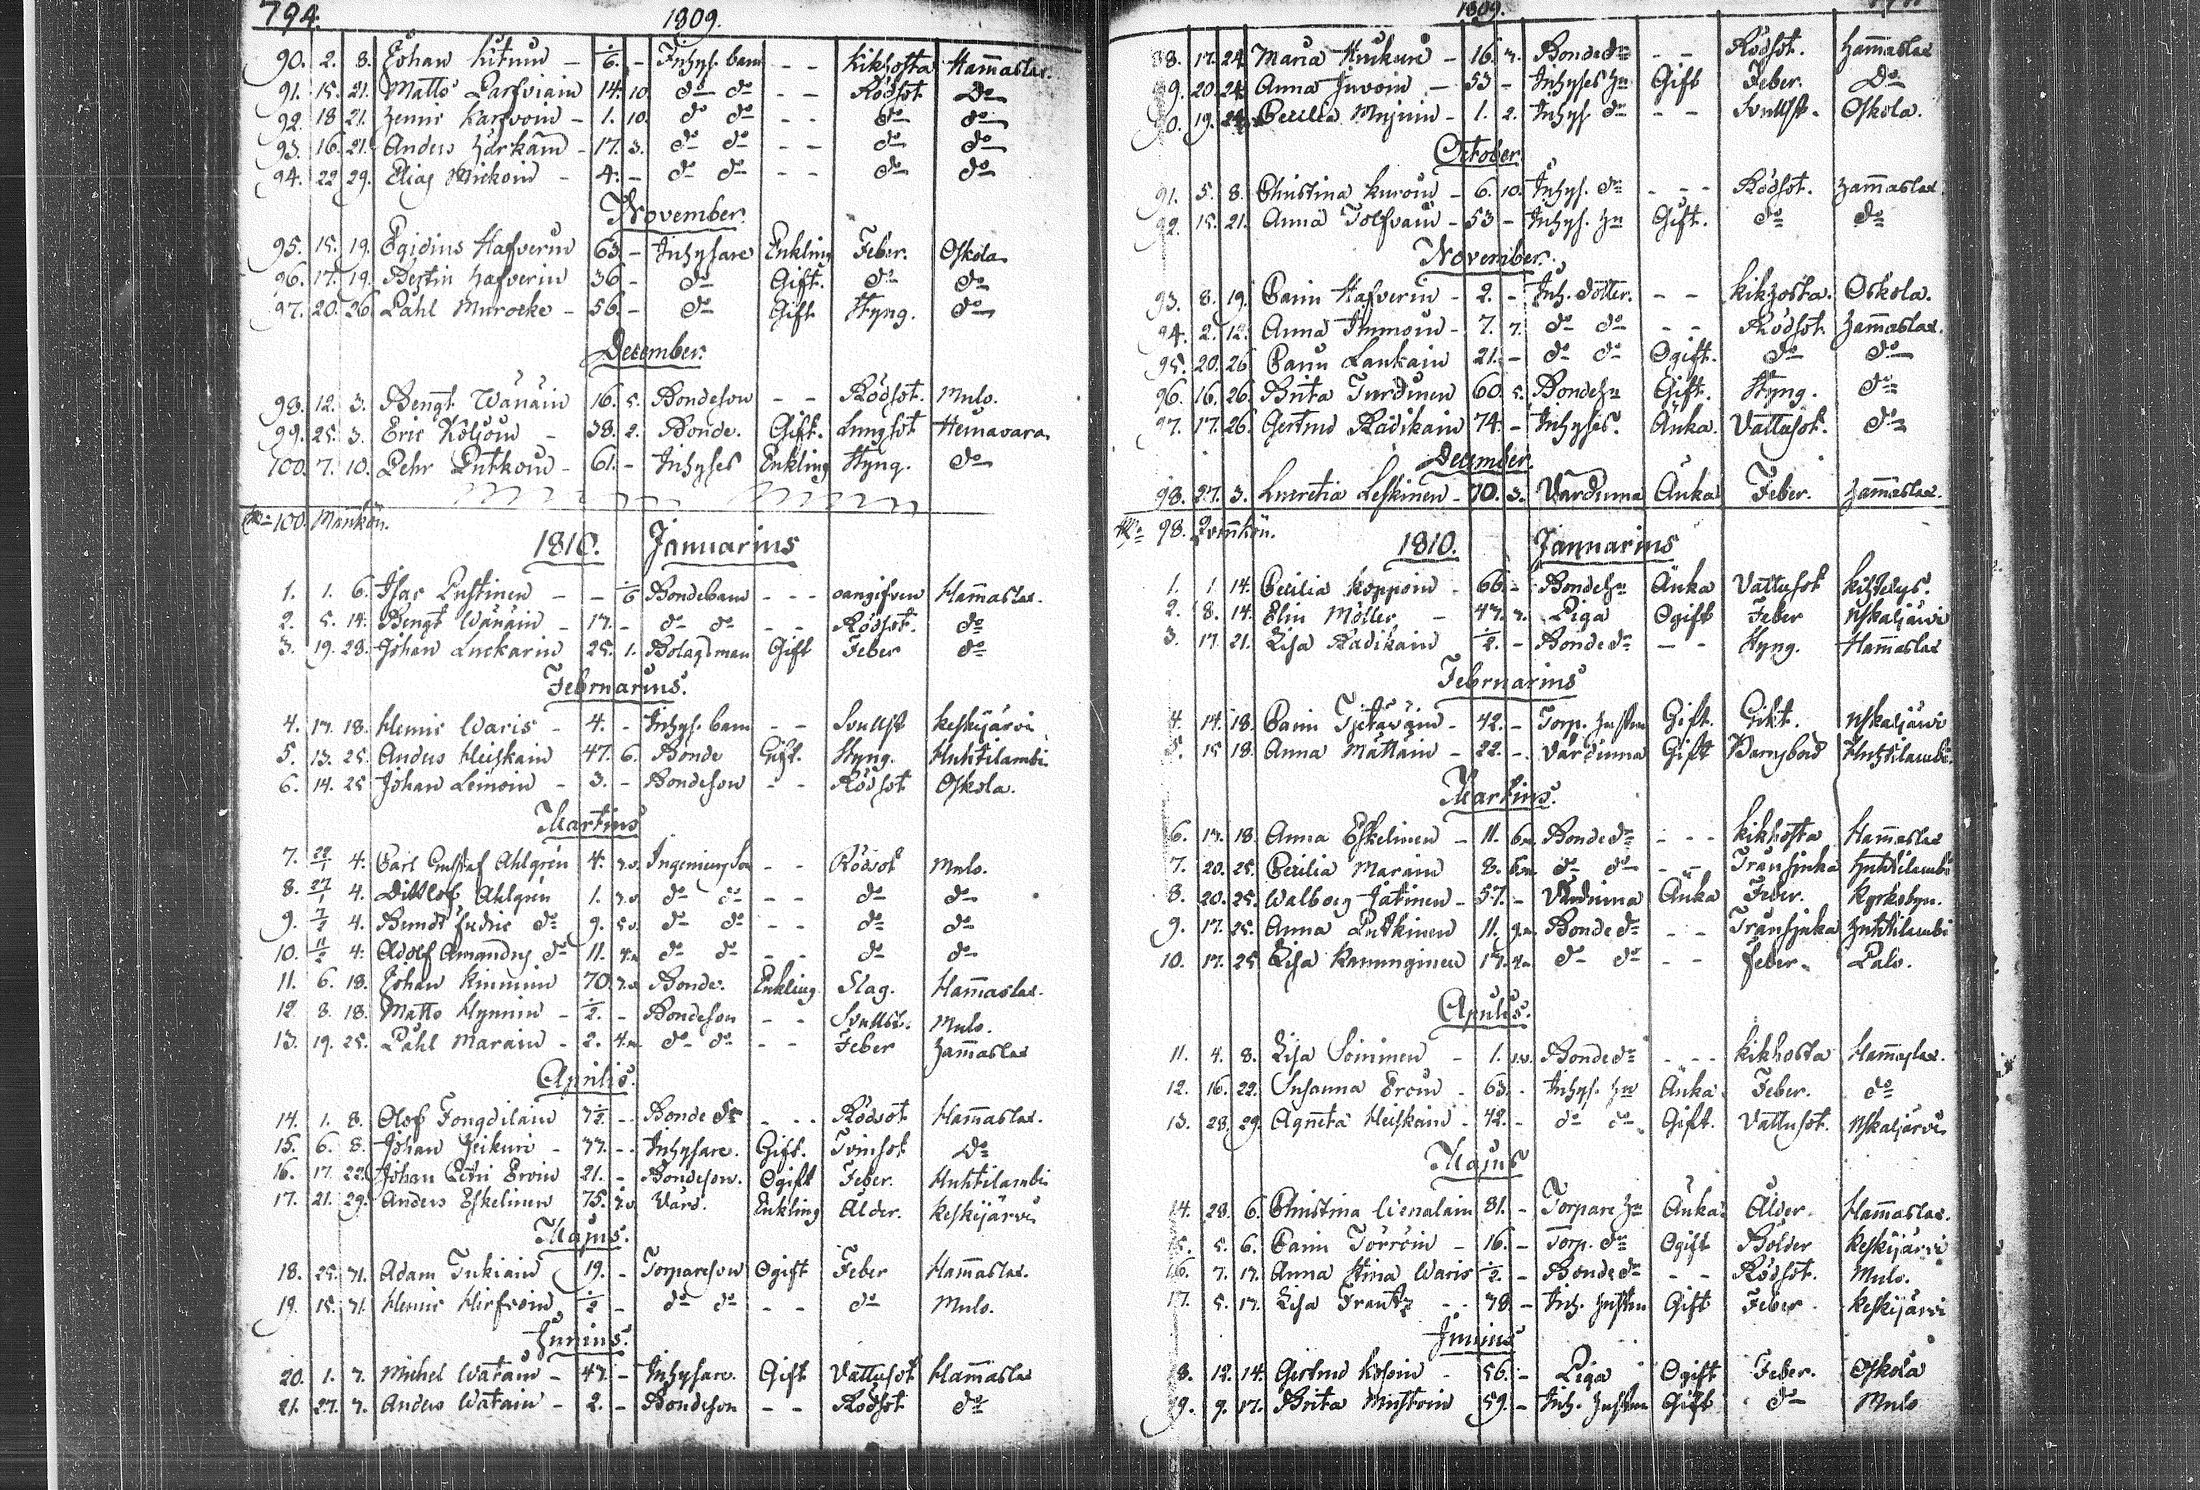 794.
1809.
90. 2. 8. Johan Kitunen – 6. – Inhys. barn – – Kikhosta Hammaslax.
91. 15. 21. Matts Parfviain 14. 10. do do – – Rödsot Do
92. 18 21. Henric Karfvoin – 1. 10. do do – – do do
93. 16. 21. Anders Härkäin – 17. 3. do do – – do do
94. 22 29. Elias Mickoin – 4. – do do – – do do
November.
95. 15. 19. Egidius Hafverin 63. – Inhysare Enkling Feber. Oskola
96. 17. 19. Bertin Hafverin 36 – do Gift. do do
97. 20. 26. Påhl Muroeke – 56. – do Gift Styng. do
December.
98. 12. 3. Bengt Wänäin 16. 5. Bondeson – – Rödsot. Mulo.
99. 25. 3. Eric Koljoin – 38. 2. Bonde. Gift. Lungsot Heinavara
100. 7. 10. Pehr Putkoin – 61. – Inhyses Enkling Styng. do
100. Mankön.
1810. Januarius
1. 1. 6. Isac Pustinen – – Bondebarn – – – oangifven Hammaslax.
2. 5. 14. Bengt Wänäin – 17. – do do – – Rödsot. do
3. 19. 28. Johan Luckarin 25. 1. Bolagsman Gift Feber do
Februarius.
4. 17. 18. Henric Waris – 4. – Inhys. barn – – Svullst Keskijärvi
5. 13. 25. Anders Heiskain 47. 6. Bonde Gift. Styng. Huhtilambi
6. 14. 25 Johan Leinoin – 3. – Bondeson – – Rödsot Oskola.
Martius
7. 4. Carl Gustaf Ahlgren 4. Ingenieurs Son – – Rödsot Mulo.
8. 27/1 4. Ditlof Ahlgren 1. do do – – do do
9. 4. Berndt Fredric do 9. do do – – do do
10. 4. Adolf Amandus do 11. do do – – do do
11. 6. 18. Johan Kinnunen 70. Bonde. Enkling Slag. Hammaslax.
12 8. 18. Matts Hynnin – 1/2. – Bondeson – – Svullst. Mulo.
13. 19. 25. Påhl Marain – 2. do do – – Feber Hammaslax
Aprilis.
14. 1. 8. Olof Tongdilain 7 1/2 – – Bonde do – – – Rödsot Hammaslax.
15. 6. 8. Johan Heikuri – 77. – – Inhysare. Gift. Tvinsot do
16. 17. 22. Johan Petri Eroin 21. – Bondeson. Ogift Feber. Huhtilambi
17. 21. 29. Anders Eskelinen 75. Värd. Enkling Ålder. Keskijärvi
Majus.
18. 25. 31. Adam Tukiain 19. – Torpareson Ogift Feber Hammaslax.
19. 15. 31. Henric Hirfvoin 1/2 – do do – – do Mulo.
Junius.
20. 1. 7. Michel Watain – 47. – Inhysare. Gift Vattusot Hammaslax
21. 27. 7. Anders Watain – 2. – Bondeson – – Rödsot do
1809.
88. 17. 24. Maria Hiukuri – 16. Bonde do – – Rödsot. Hammaslax
89. 20. 24. Anna Juvoin – 53 – Inhyses Hu Gift Feber. Do
90. 19. 24. Cecilia Mujuin – 1. 2. Inhys. do – – Svullst. Oskola.
October
91. 5. 8. Christina Kuroin – 6. 10. Inhys. do – – – Rödsot. Hammaslax.
92. 15. 21. Anna Tolfvain – 53 – Inhys. Hu Gift. do do
November.
93. 8. 19. Carin Hafverin – 2. – Inh. dotter. – – Kikhosta. Oskola.
94. 2. 12. Anna Immoin – 7. 7. do do – – Rödsot. Hammaslax.
95. 20. 26 Carin Laukain 21. – do do Ogift. do do
96. 16. 26. Brita Turdinen 60. 5. Bondehu Gift. Styng. do
97. 17. 26. Gertrud Rädikain 74. – Inhyses. Änka. Vattusot. do
December.
98. 27. 3. Lucretia Leskinen – 70. 3. Värdinna Änka Feber. Hammaslax.
98. Qvinkön.
1810. Januarius
1. 1 14. Cecilia Koppoin – 66. – Bondehu Änka Vattusot Kihtelys.
2. 8. 14. Elin Möller – 47. 7. Piga Ogift Feber Uskaljärvi
3. 17 21. Lisa Rädikain 1/2. – Bonde do – – Styng. Hammaslax
Februarius
4. 14. 18. Carin Tjetäväin – 42. – Torp. Hustru Gift. Gikt. Uskaljärvi
5. 15 18. Anna Mattain – 22. – Värdinna Gift Barnsbörd Huhtilambi.
Martius.
6. 17. 18. Anna Eskelinen – 11. Bonde do – – – Kikhosta Hammaslax
7. 20. 25. Cecilia Marain 8. do do – – Trånsjuka Huhtilambi
8. 20. 25. Walborg Jatinen – 57. – Värdinna Änka Feber. Kyrkobyn.
9. 17. 25. Anna Putkinen 11. Bonde do – – Trånsjuka Huhtilambi
10. 17. 25 Lisa Kanunginen 17. do do – – Feber. Palo.
Aprilis.
11. 4. 8. Lisa Soininen – 1. Bonde do – – – Kikhosta Hammaslax.
12. 16. 22. Susanna Eroin – 63. – Inhys. Hu Änka Feber. do
13. 28. 29. Agneta Heiskain – 42. – do do Gift. Vattusot. Uskaljärvi
Majus
14. 28. 6. Christina Lienalain 81. – Torpare Hu Änka Ålder. Hammaslax.
15. 5. 6. Carin Törröin – 16. – Torp. do Ogift Bölder Keskijärvi
16. 7. 17. Anna Stina Waris 1/2. – Bonde do – – Rödsot. Mulo.
17. 5. 17. Lisa Frantz – – 78. – Inh. Hustru Gift Feber Keskijärvi
Junius
18. 12. 14. Gertrud Kosoin – 56. – Piga Ogift Feber. Oskola
19. 9. 17. Brita Mustoin 59. – Inh. Hustru Gift do Mulo